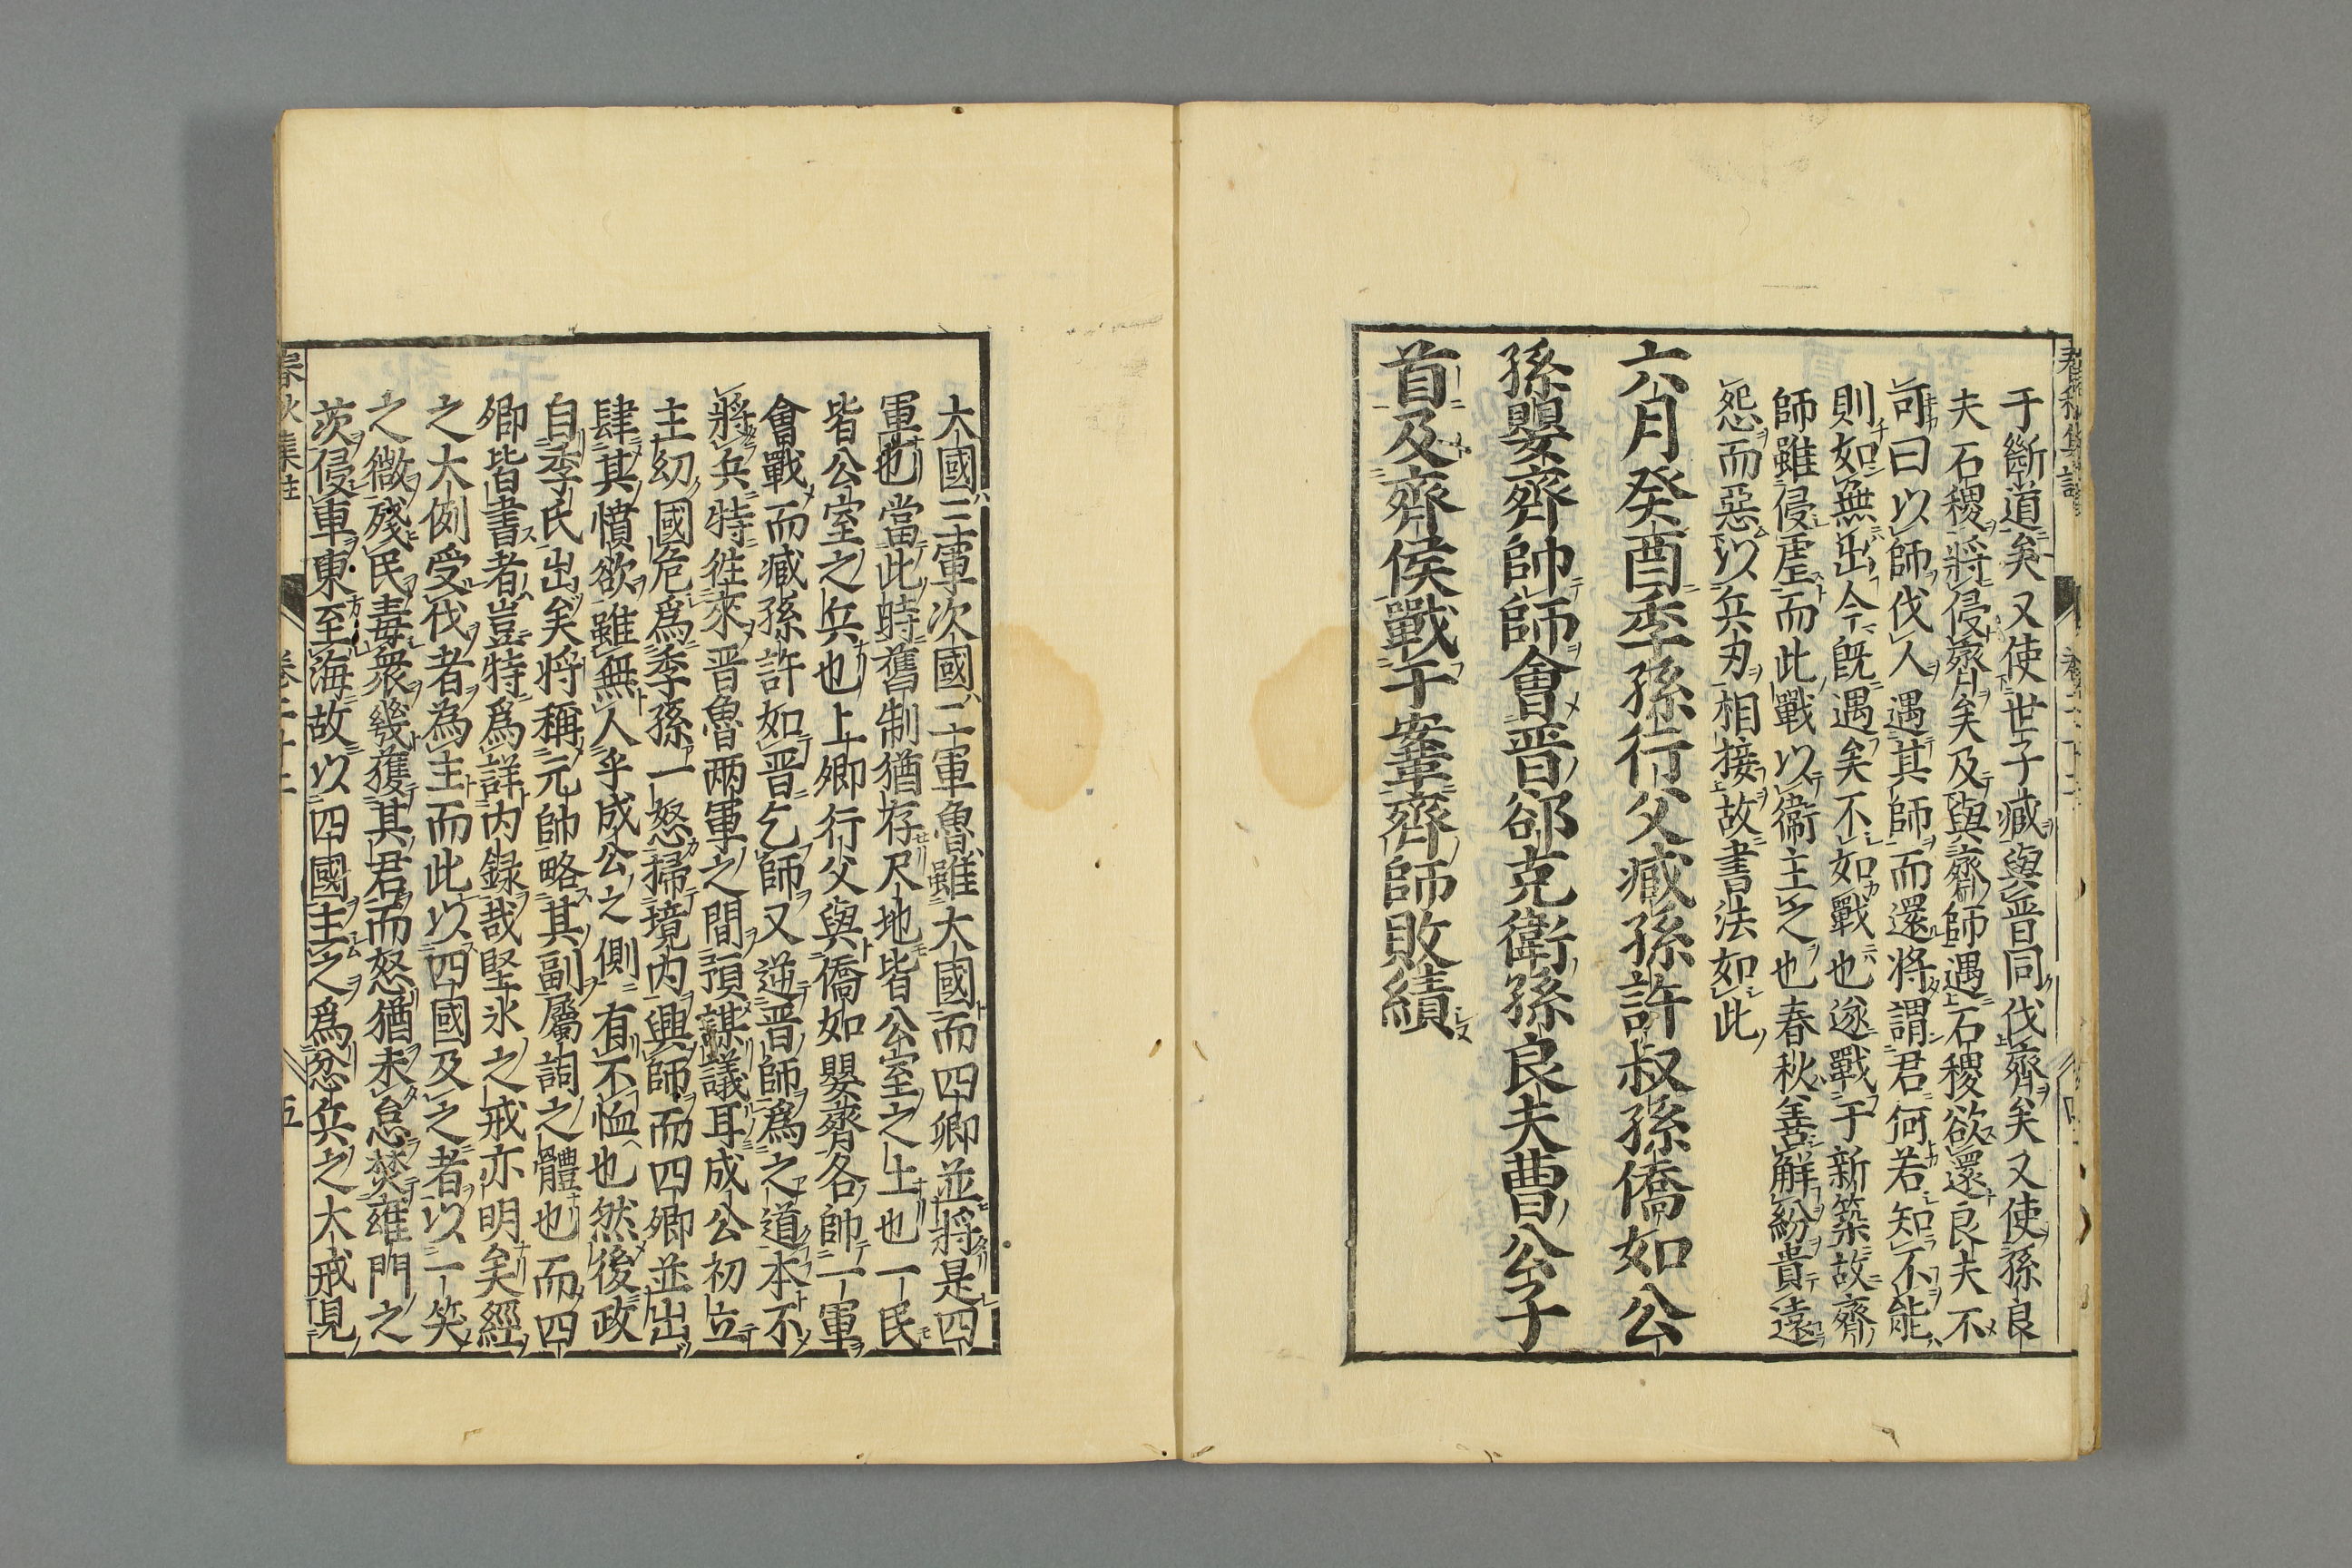 于斷道矣又使世子臧與晋同伐齊矣又使孫良
夫石稷將侵齊矣及與齊師遇石稷欲還良夫不
可曰以師伐人遇其師而還將謂君何若知不能
則如無出今旣遇矣不如戰也遂戰于新築故齊
師雖侵虐而此戰以衞主之也春秋善觧紛貴遠
怨而惡以兵刃相接故書法如此
六月癸酉季孫行父臧孫許叔孫僑如公
孫嬰齊帥師會晋郤克衛孫良夫曹公子
首及齊侯戰于鞌齊師敗績
大國三軍次國二軍魯雖大國而四卿並將是四
軍也當此時舊制猶存尺地皆公室之土也一民
皆公室之兵也上卿行父與僑如嬰齊各帥一軍
會戰而臧孫許如晋乞師又逆晋師爲之道本不
將兵特徃來晋魯两軍之間預謀議耳成公初立
主幼國危爲季孫一怒掃境内興師而四卿並出
肆其憤欲雖無人乎成公之側有不恤也然後政
自季氏出矣將稱元帥略其副屬詞之體也而四
卿皆書者豈特爲詳内録哉堅氷之戒亦明矣經
之大例受伐者為主而此以四國及之者以一笑
之微殘民毒衆幾獲其君而怒猶未怠焚雍門之
茨侵車東至海故以四國主之爲忿兵之大戒見
春秋集註 卷二十二 五